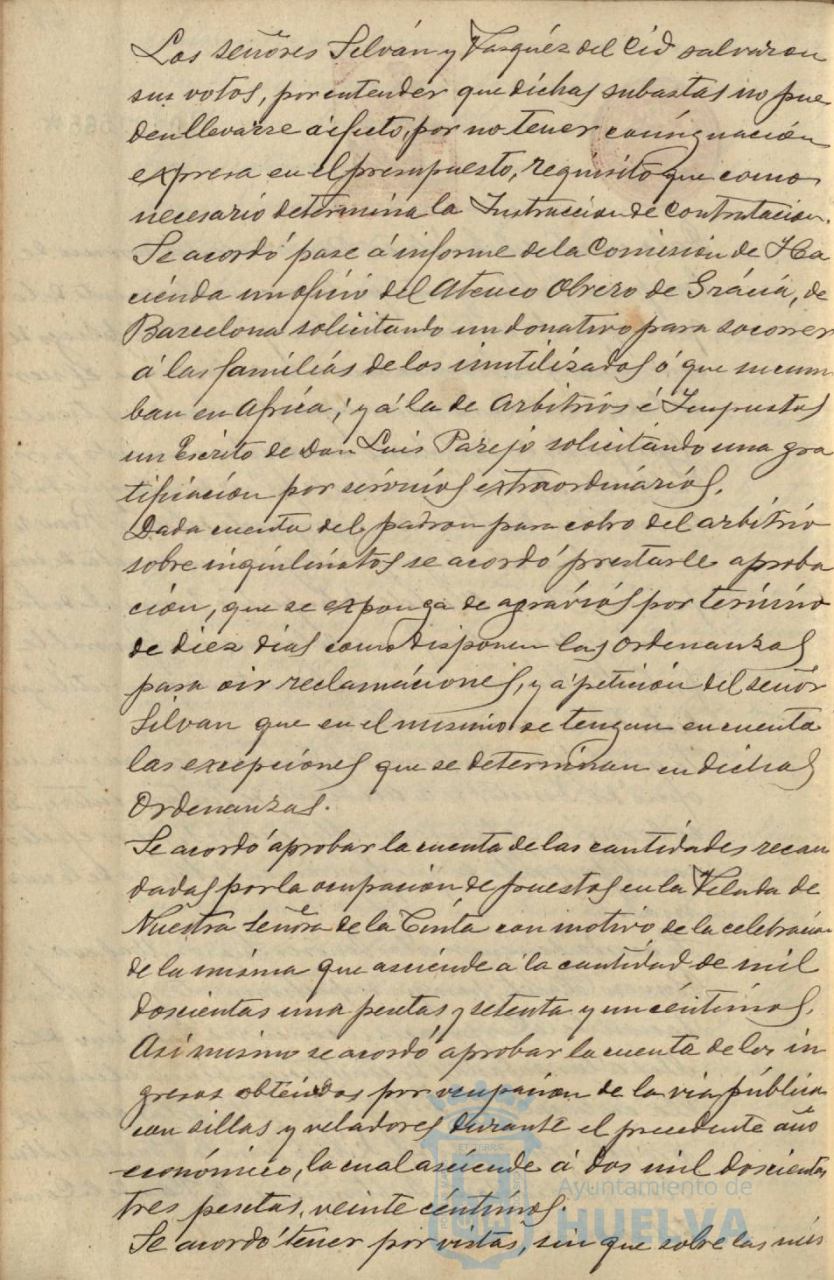 Los señores Silván y Vasquéz del Cid salvaron
sus votos, por entender que dichas subastas no pue
den llevarse á efecto, por no tener consignación
expresa en el presupuesto, requisito que como
necesario determina la Instruccion de Contratacion.
Se acordó pase á informe de la Comision de Ha
cienda un oficio del Ateneo Obrero de Grácia, de
Barcelona solicitando un donativo para socorrer
á las familias de los inutilizados ó que sucum
ban en Africa; y á la de Arbitrios é Impuestos
un Escrito de Don Luis Parejo solicitando una gra
tificacion por servicios extraordinarios.
Dada cuenta del padron para cobro del arbitrio
sobre inquilinatos se acordó prestarle aproba
ción, que se exponga de agravios por término
de diez dias como disponen las Ordenanzas
para oir reclamaciones, y á petición del señor
Silvan que en el mismo se tengan en cuenta
las excepciones que se determinan en dichas
Ordenanzas.
Se acordó aprobar la cuenta de las cantidades recau
dadas por la ocupacion de puestos en la Velada de
Nuestra Señora de la Cinta con motivo de la celebracion
de la misma que asciende á la cantidad de mil
doscientas una pesetas y setenta y un céntimos.
Asi mismo se acordó aprobar la cuenta de los in
gresos obtenidos por ocupacion de la via pública
con sillas y veladores durante el precedente año
económico, la cual asciende á dos mil doscientas
tres pesetas, veinte céntimos.
Se acordó tener por vistas, sin que sobre las mis
Ayuntamiento de
HUELVA